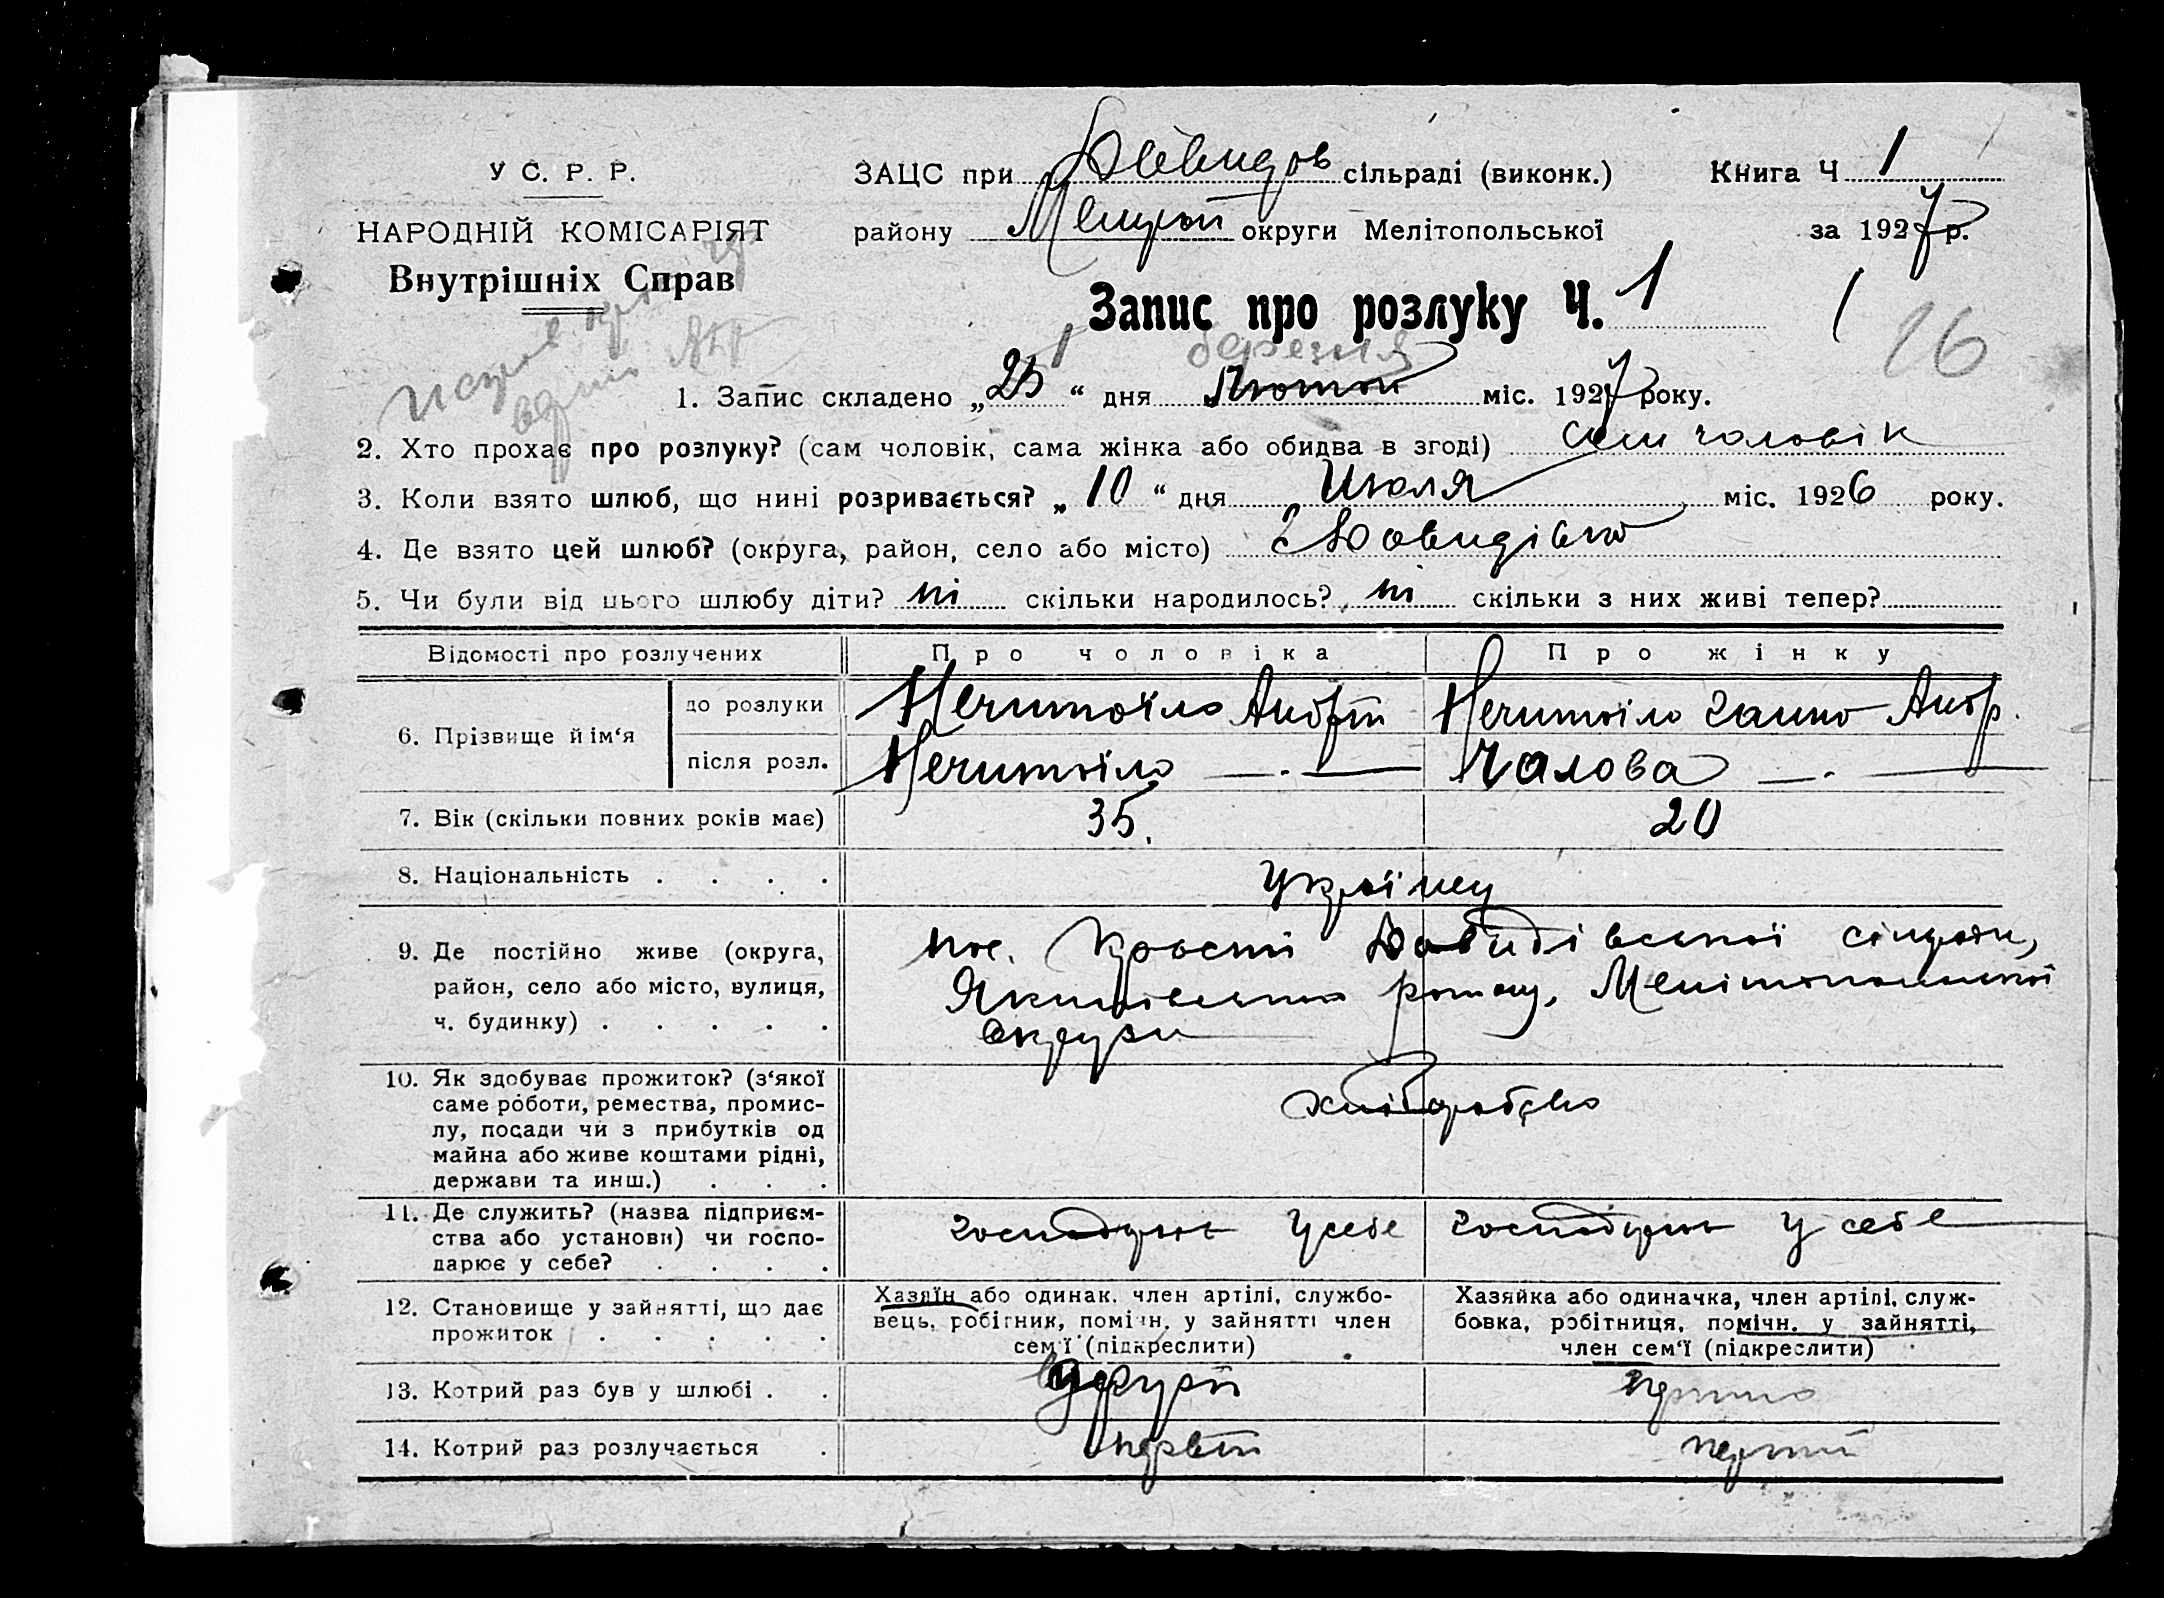 У С. Р. Р.
НАРОДНІЙ КОМІСАРІЯТ
Внутрішніх Справ
ЗАЦС при Давидов сільраді (виконк.) Книга Ч 1
району округи Мелітопольської за 1927 р.
Запис про розлуку Ч. 1
1
16
березня
1. Запис складено „25“ дня Лютого міс. 1927 року.
2. Хто прохає про розлуку? (сам чоловік, сама жінка або обидва в згоді) сам чоловік
3. Коли взято шлюб, що нині розривається? „10“ дня Июля міс. 1926 року.
4. Де взято цей шлюб? (округа, район, село або місто) с Давидівка
5. Чи були від цього шлюбу діти? ні скільки народилось? ні скільки з них живі тепер?
Відомості про розлучених Про чоловіка Про жінку
6. Прізвище й ім‘я
до розлуки Нечитайло Нечитайло Ганна Андр.
після розл. Нечитайло —.— Чалова —.—
7. Вік (скільки повних років має) 35. 20
8. Національність . . . . Українці
9. Де постійно живе (округа, район, село або місто, вулиця, ч. будинку) . . . . .
пос. Давидівської сільради,
Якимівського району, Мелітопольської
округи
10. Як здобуває прожиток? (з‘якої саме роботи, ремества, промис-
лу, посади чи з прибутків од
майна або живе коштами рідні,
держави та инш.) . . .
хліборобство
11. Де служить? (назва підприєм-
ства або установи) чи госпо-
дарює у себе? . . . .
господарює у себе господарює у себе
12. Становище у зайнятті, що дає
прожиток . . . . .
Хазяїн або одинак, член артілі, службо-
вець, робітник, помічн. у зайнятті член
сем‘ї (підкреслити)
Хазяйка або одиначка, член артілі, служ-
бовка, робітниця, помічн. у зайнятті,
член сем‘ї (підкреслити)
13. Котрий раз був у шлюбі . .
14. Котрий раз розлучається . первий перший